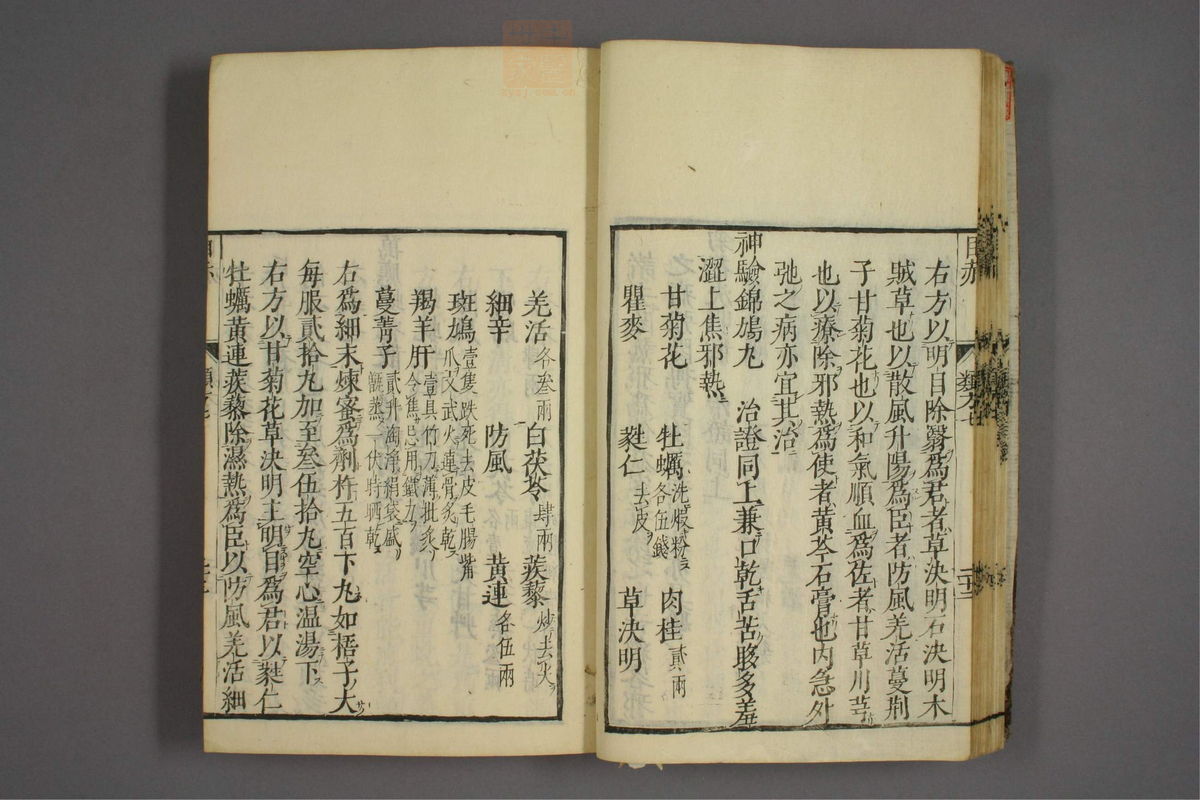 右方以明目除翳爲君者草決明石決明木
賊草也以散風升陽爲臣者防風羌活蔓荆
子甘菊花也以和氣順血爲佐者甘草川芎
也以療除邪熱爲使者黄芩石膏也内急外
弛之病亦宜其治
神驗錦鳩丸 治證同上兼口乾舌苦眵多羞
澀上焦邪熱
甘菊花 牡蠣洗煅粉各伍錢 肉桂貳兩
瞿麥 蕤仁去皮 草決明
羌活各叁兩 白茯苓肆兩 蒺藜炒去火
細辛 防風 黄連各伍兩
斑鳩壹隻跌死去皮毛腸嘴爪文武火連骨炙乾
羯羊肝壹具竹刀薄批炙令焦忌用鐵刀
蔓菁子貳升淘淨絹袋盛甑蒸一伏時晒乾
右爲細末煉蜜爲劑杵五百下丸如梧子大
每服貳拾丸加至叁伍拾丸空心温湯下
右方以甘菊花草決明主明目爲君以蕤仁
牡蠣黄連蒺藜除濕熱爲臣以防風羌活細